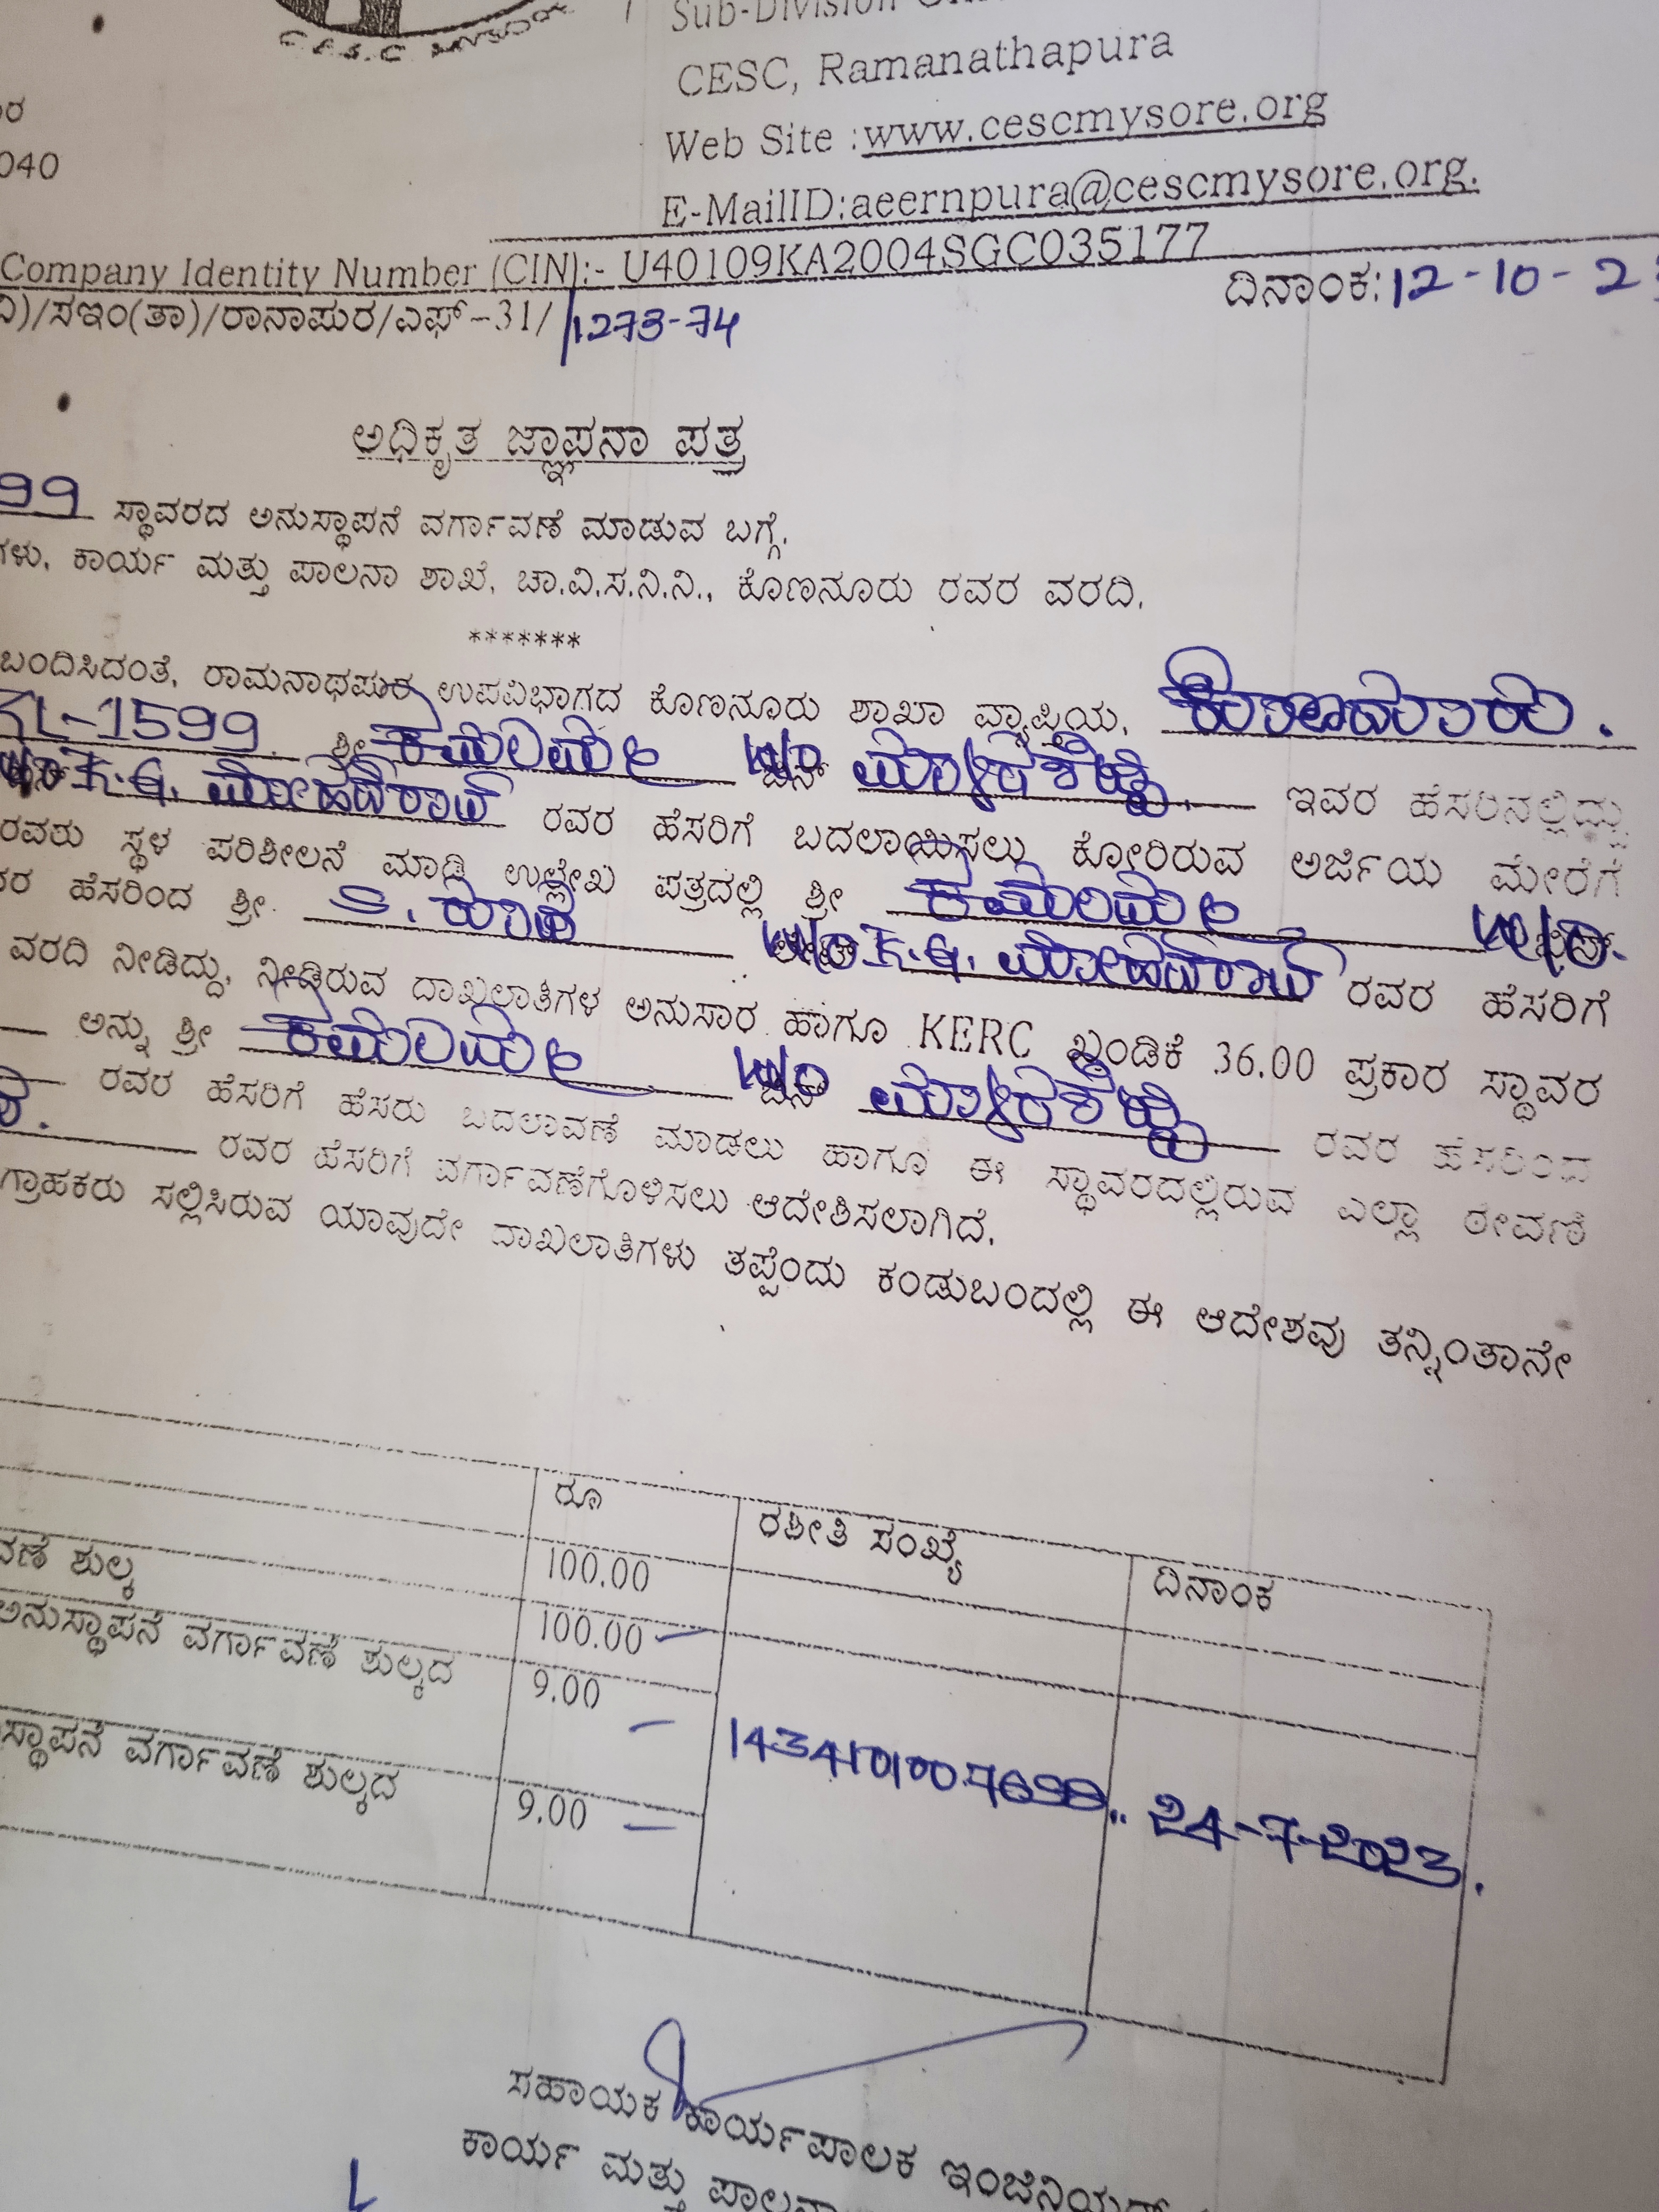 C.E.S.C. MYSORE
Sub-Division
CESC, Ramanathapura
040
Web Site :www.cescmysore.org
E-MailID:aeernpura@cescmysore.org.
Company Identity Number (CIN):- U40109KA2004SGC035177
ದಿನಾಂಕ:12-10-2
)/ಸಇಂ(ತಾ)/ರಾನಾಪುರ/ಎಫ್-31/ 1273-74
ಅಧಿಕೃತ ಜ್ಞಾಪನಾ ಪತ್ರ
99 ಸ್ಥಾವರದ ಅನುಸ್ಥಾಪನೆ ವರ್ಗಾವಣೆ ಮಾಡುವ ಬಗ್ಗೆ.
ಗಳು, ಕಾರ್ಯ ಮತ್ತು ಪಾಲನಾ ಶಾಖೆ, ಚಾ.ವಿ.ಸ.ನಿ.ನಿ., ಕೊಣನೂರು ರವರ ವರದಿ.
*******
ಬಂದಿಸಿದಂತೆ, ರಾಮನಾಥಪುರ ಉಪವಿಭಾಗದ ಕೊಣನೂರು ಶಾಖಾ ವ್ಯಾಪ್ತಿಯ,
L-1599 ಶ್ರೀ W/O ಇವರ ಹೆಸರಿನಲ್ಲಿದ್ದು
W/O K.G. ಮೋಹನ್‌ರಾವ್ ರವರ ಹೆಸರಿಗೆ ಬದಲಾಯಿಸಲು ಕೋರಿರುವ ಅರ್ಜಿಯ ಮೇರೆಗೆ
ರವರು ಸ್ಥಳ ಪರಿಶೀಲನೆ ಮಾಡಿ ಉಲ್ಲೇಖ ಪತ್ರದಲ್ಲಿ ಶ್ರೀ W/O
ರ ಹೆಸರಿಂದ ಶ್ರೀ. W/O K.G. ಮೋಹನ್‌ರಾವ್ ರವರ ಹೆಸರಿಗೆ
ವರದಿ ನೀಡಿದ್ದು, ನೀಡಿರುವ ದಾಖಲಾತಿಗಳ ಅನುಸಾರ ಹಾಗೂ KERC ಖಂಡಿಕೆ 36.00 ಪ್ರಕಾರ ಸ್ಥಾವರ
ಅನ್ನು ಶ್ರೀ W/O ರವರ ಹೆಸರಿಂದ
ರವರ ಹೆಸರಿಗೆ ಹೆಸರು ಬದಲಾವಣೆ ಮಾಡಲು ಹಾಗೂ ಈ ಸ್ಥಾವರದಲ್ಲಿರುವ ಎಲ್ಲಾ ಠೇವಣಿ
ರವರ ಹೆಸರಿಗೆ ವರ್ಗಾವಣೆಗೊಳಿಸಲು ಆದೇಶಿಸಲಾಗಿದೆ.
ಗ್ರಾಹಕರು ಸಲ್ಲಿಸಿರುವ ಯಾವುದೇ ದಾಖಲಾತಿಗಳು ತಪ್ಪೆಂದು ಕಂಡುಬಂದಲ್ಲಿ ಈ ಆದೇಶವು ತನ್ನಿಂತಾನೇ
ರೂ ರಶೀತಿ ಸಂಖ್ಯೆ ದಿನಾಂಕ
100.00
ವಣೆ ಶುಲ್ಕ 100.00
ಅನುಸ್ಥಾಪನೆ ವರ್ಗಾವಣೆ ಶುಲ್ಕದ 9.00
ಸ್ಥಾಪನೆ ವರ್ಗಾವಣೆ ಶುಲ್ಕದ 9.00 24-7-2023.
ಸಹಾಯಕ ಕಾರ್ಯಪಾಲಕ ಇಂಜಿನಿಯರ್
ಕಾರ್ಯ ಮತ್ತು ಪಾಲನಾ